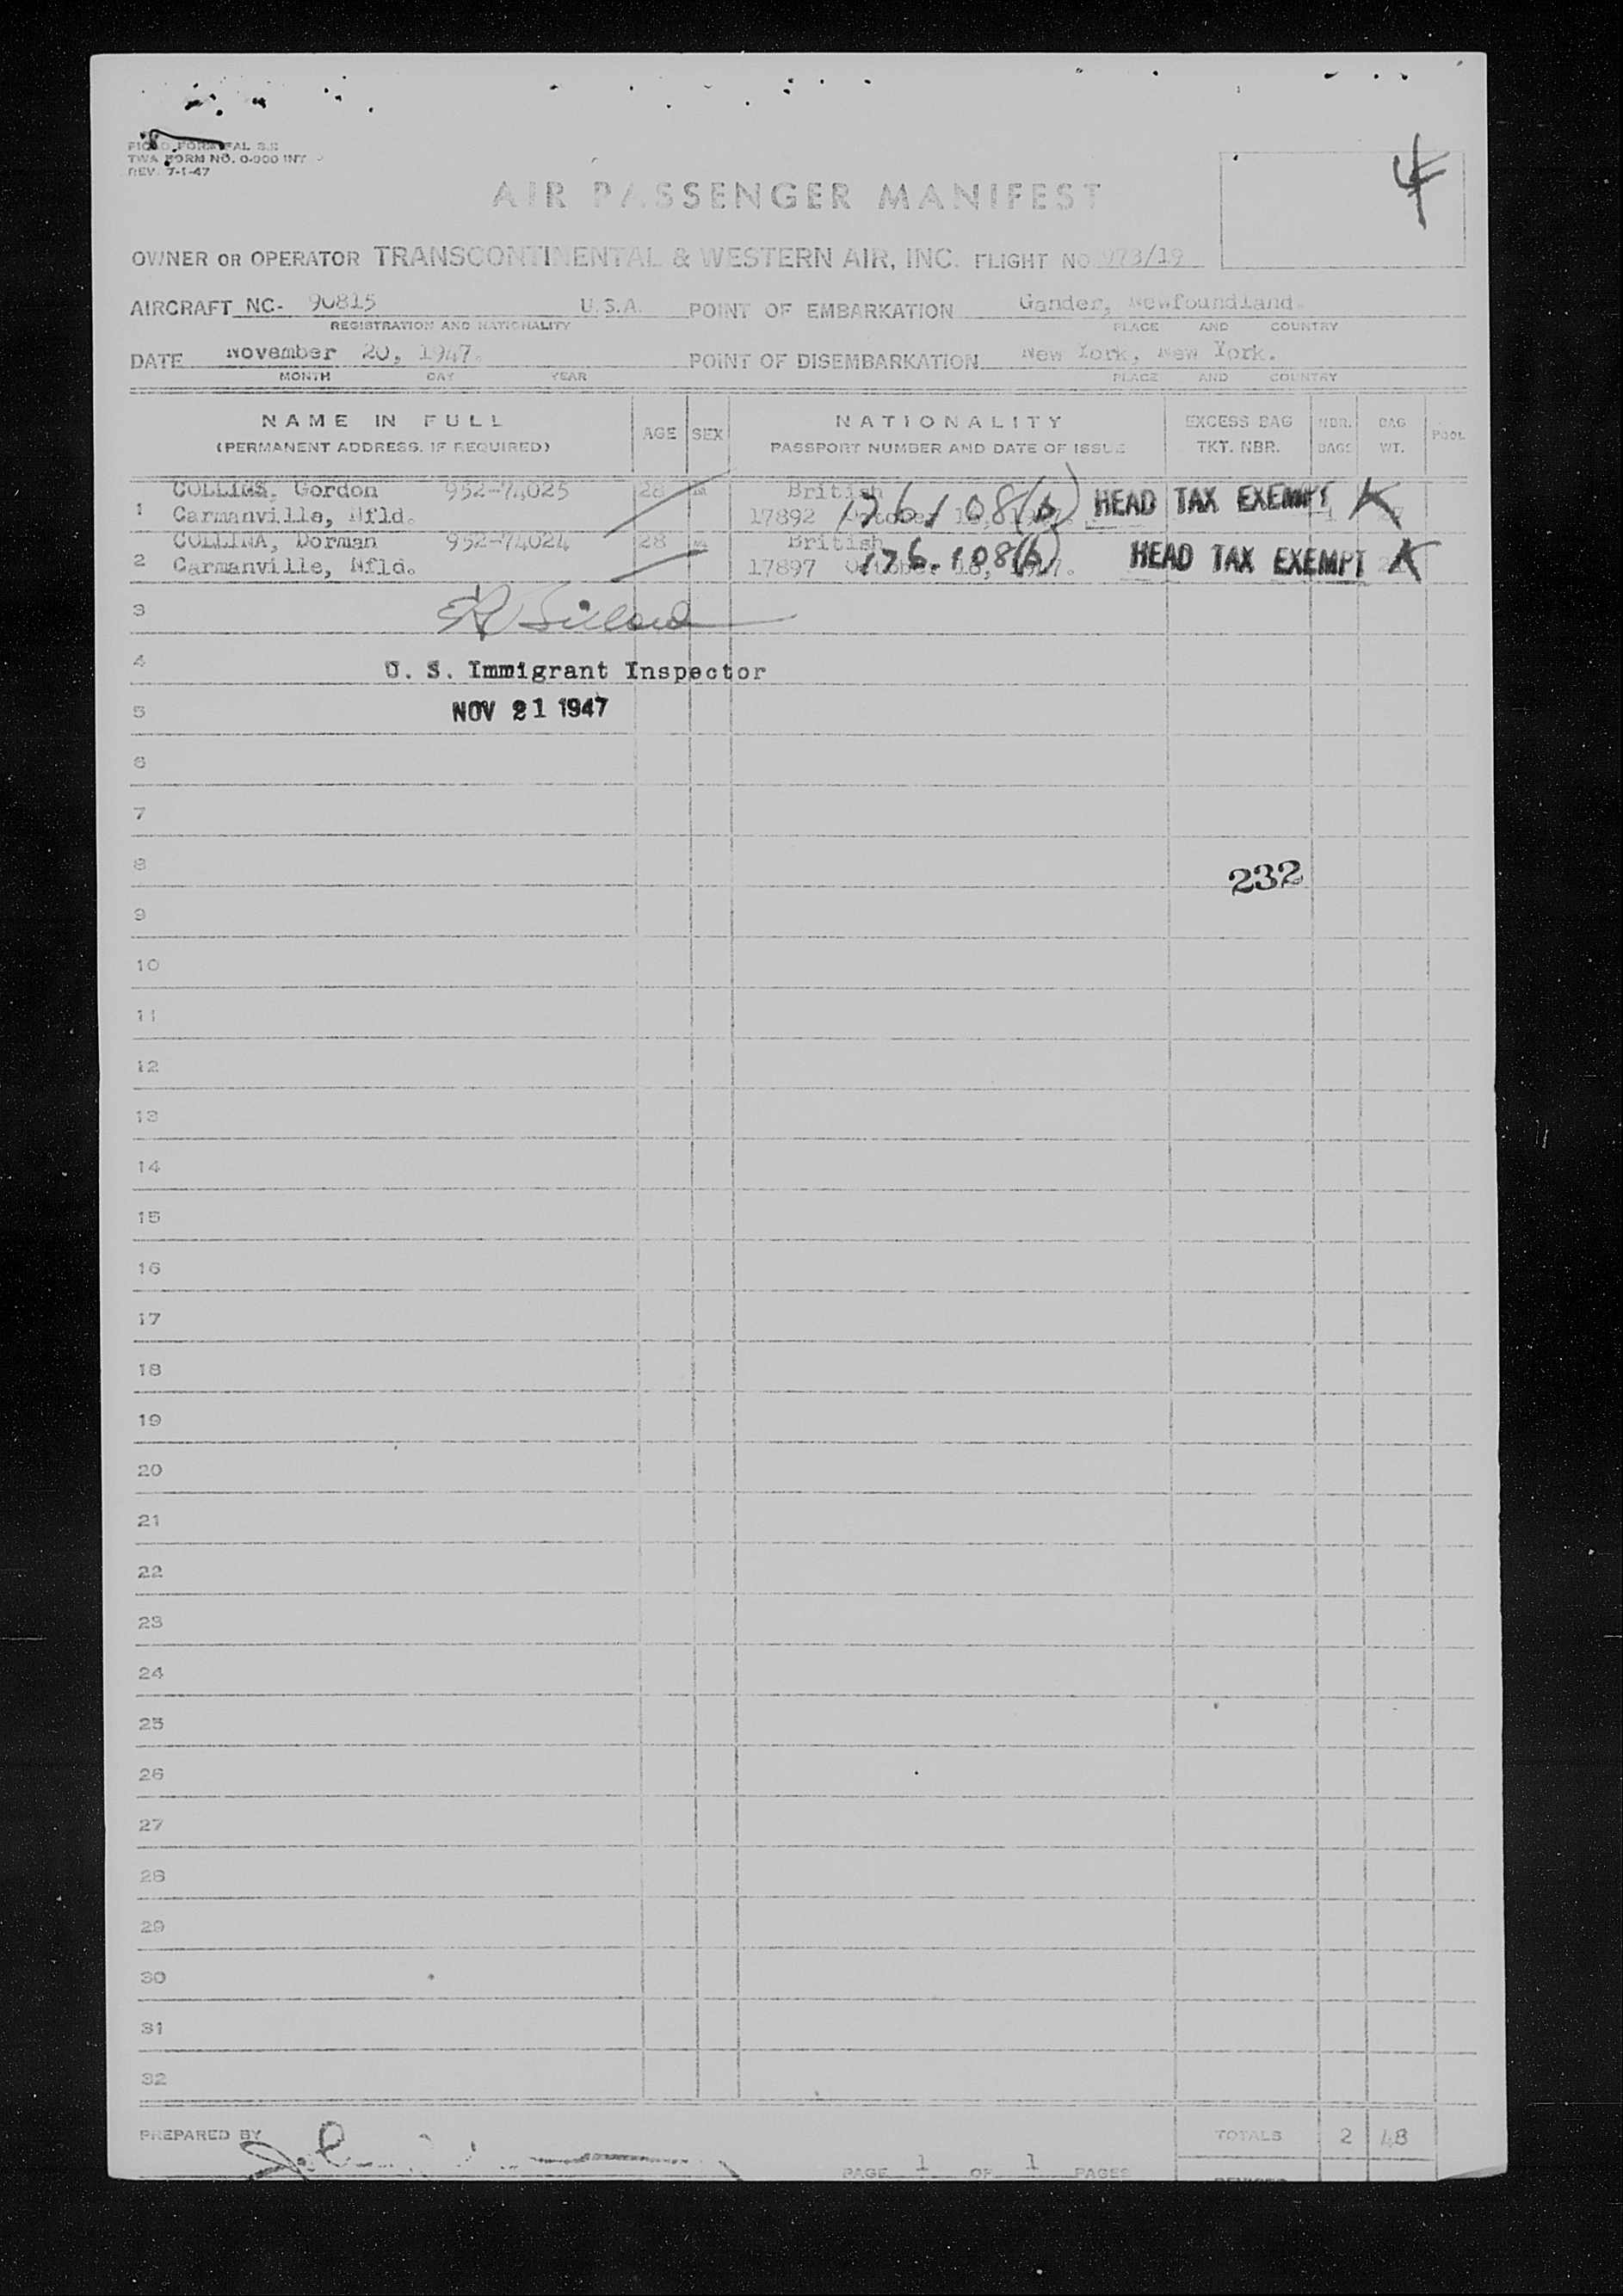 TWA FORM NO. 0-900 INT
REV. 7-1-47
4
AIR PASSENGER MANIFEST
OWNER OR OPERATOR TRANSCONTINENTAL & WESTERN AIR, INC. FLIGHT NO 973/19
AIRCRAFT NC- 90815 U.S.A. POINT OF EMBARKATION Gander, Newfoundland.
REGISTRATION AND NATIONALITY PLACE AND COUNTRY
DATE November 20, 1947. POINT OF DISEMBARKATION New York, New York.
MONTH DAY YEAR PLACE AND COUNTRY
NAME IN FULL AGE SEX NATIONALITY EXCESS BAG NBR. BAG POOL
(PERMANENT ADDRESS, IF REQUIRED) PASSPORT NUMBER AND DATE OF ISSUE TKT. NBR. BAGS WT.
COLLINS, Gordon 952-74025 28 M British
1 Carmanville, Nfld. 17892 October 176.108(b) HEAD TAX EXEMPT 1
COLLINA, Dorman 952-74024 28 M British
2 Carmanville, Nfld. 17897 October 18, 1947. 176.108(b) HEAD TAX EXEMPT
3
4 U. S. Immigrant Inspector
5 NOV 21 1947
6
7
8 232
9
10
11
12
13
14
15
16
17
18
19
20
21
22
23
24
25
26
27
28
29
30
31
32
PREPARED BY TOTALS 2 48
PAGE 1 OF 1 PAGES